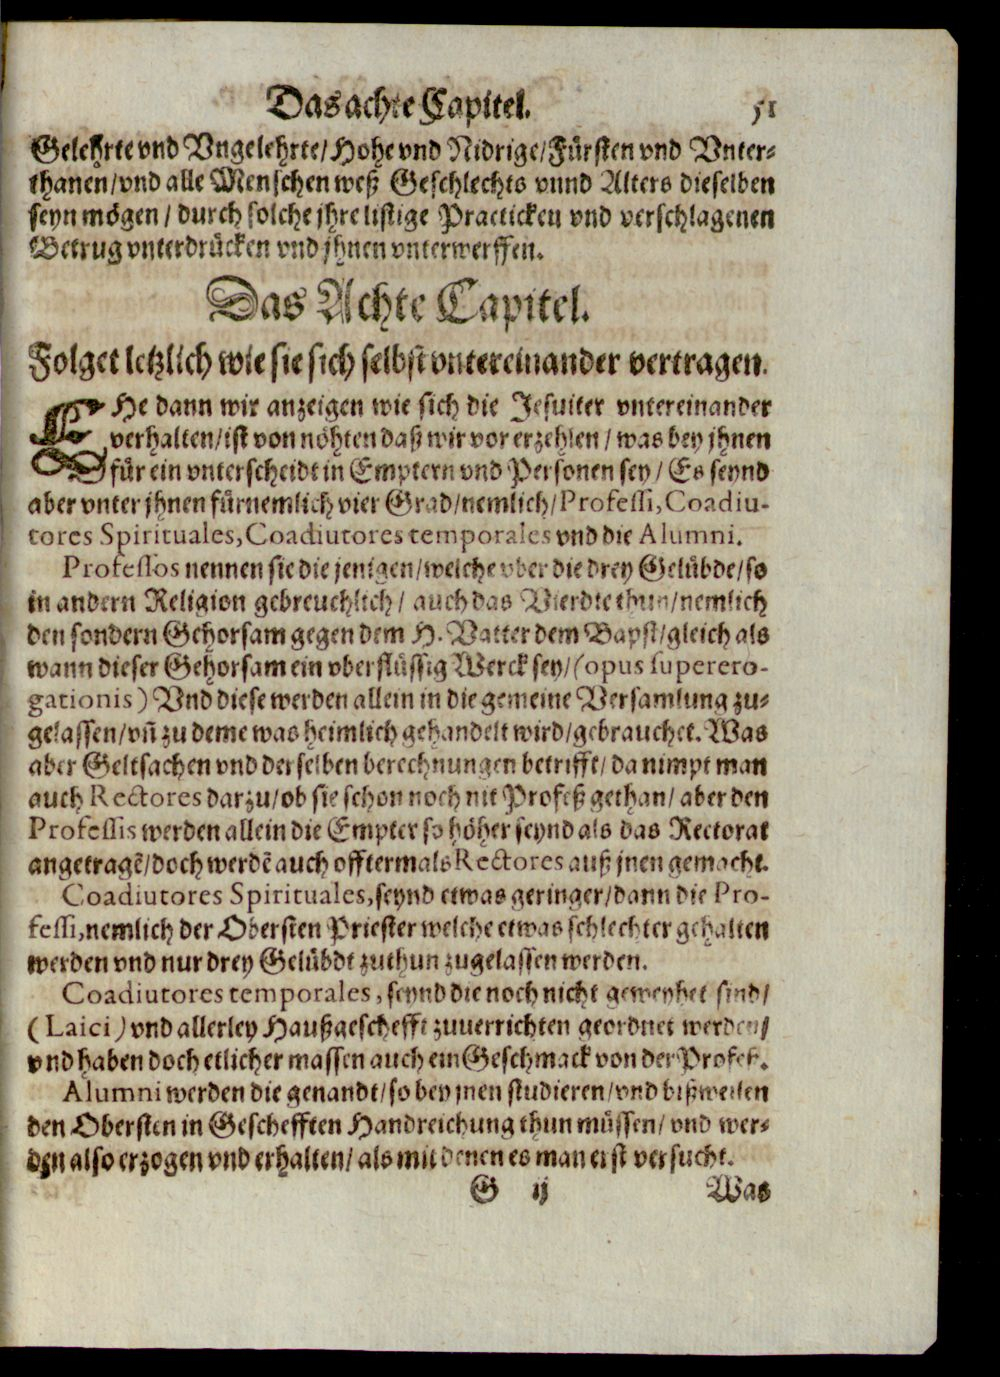 Das achte Capitel. 51
Gelehrte vnd Vngelehrte/ Hohe vnd Nidrige/ Fürsten vnd Vnter-
thanen/ vnd alle Menschen weß Geschlechts vnnd Alters dieselben
seyn mögen/ durch solche jhre listige Practicken vnd verschlagenen
Betrug vnterdrücken vnd jhnen vnterwerffen.
Das Achte Capitel.
Folget letzlich wie sie sich selbst vntereinander vertragen.
EHe dann wir anzeigen wie sich die Jesuiter vntereinander
verhalten/ ist von nöhten daß wir vor erzehlen/ was bey jhnen
für ein vnterscheidt in Emptern vnd Personen sey/ Es seynd
aber vnter jhnen fürnemlich vier Grad/ nemlich/ Professi, Coadiu-
tores Spirituales, Coadiutores temporales vnd die Alumni.
Professos nennen sie die jenigen/ welche vber die drey Gelübde/ so
in andern Religion gebreuchlich/ auch das Vierdte thun/ nemlich
den sondern Gehorsam gegen dem H. Vatter dem Bapst/ gleich als
wann dieser Gehorsam ein vberflüssig Werck sey/ (opus superero-
gationis) Vnd diese werden allein in die gemeine Versamlung zu-
gelassen/ vñ zu deme was heimlich gehandelt wird/ gebrauchet. Was
aber Geltsachen vnd derselben berechnungen betrifft/ da nimpt man
auch Rectores darzu/ ob sie schon noch nit Profeß gethan/ aber den
Professis werden allein die Empter so höher seynd als das Rectorat
angetragẽ/ doch werdẽ auch offtermals Rectores auß jnen gemacht.
Coadiutores Spirituales, seynd etwas geringer/ dann die Pro-
fessi, nemlich der Obersten Priester welche etwas schlechter gehalten
werden vnd nur drey Gelübde zuthun zugelassen werden.
Coadiutores temporales, seynd die noch nicht geweyhet sind/
(Laici) vnd allerley Haußgeschefft zuuerrichten geordnet werden/
vnd haben doch etlicher massen auch ein Geschmack von der Profeß.
Alumni werden die genandt/ so bey jnen studieren/ vnd bißweilen
den Obersten in Geschefften Handreichung thun müssen/ vnd wer-
den also erzogen vnd erhalten/ als mit denen es man erst versucht.
G ij Was